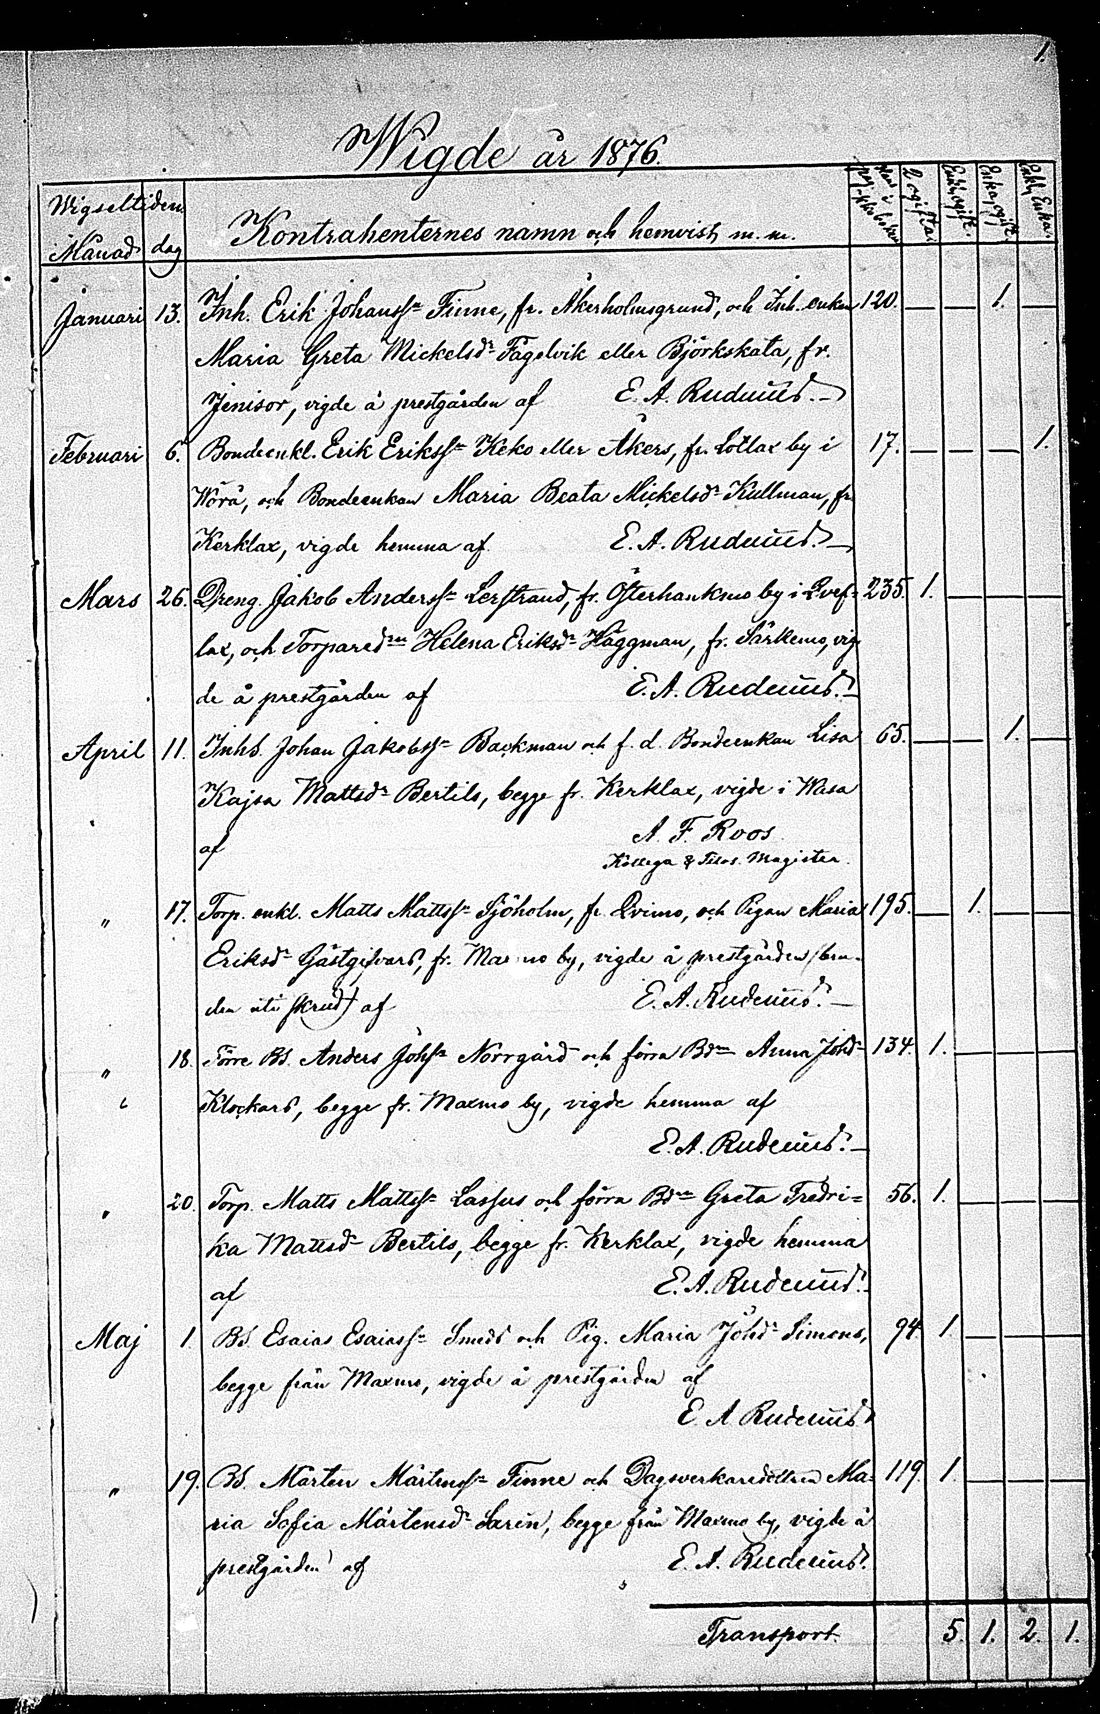 1.
Wigde år 1876.
Wigseltiden
Månad dag
Kontrahenternes namn och hemvist m. m.
2 ogifta.
Enkl. ogift.
Enka, ogift.
Enkl. Enka.
Januari 13. Inh. Erik Johanss:n Finne, fr. Åkerholmsgrund, och Inh. enkan 120. — — 1. —
Maria Greta Mickelsd:r Fågelvik eller Björkskata, fr.
Jenisor, vigde å prestgården af E. A. Rudenius. —
Februari 6. Bondeenkl. Erik Erikss:n Keko eller Åkers, fr. Lotlax by i 17. — — — 1.
Wörå, och Bondeenkan Maria Beata Mickelsd:r Kullman, fr.
Kerklax, vigde hemma af E. A. Rudenius. —
Mars 26. Dreng. Jakob Anderss:n Lerstrand, fr. Österhankmo by i Qvef- 235. 1. — — —
lax, och Torpared:rn Helena Eriksd:r Häggman, fr. Särkemo, vig-
de å prestgården af E. A. Rudenius. —
April 11. Inhs. Johan Jakobss:n Backman och f. d. Bondeenkan Lisa 65. — — 1. —
Kajsa Mattsd:r Bertils, begge fr. Kerklax, vigde i Wasa
af A. F. Roos.
Kollega & Filos. Magister.
" 17. Torp. enkl. Matts Mattss:n Sjöholm, fr. Qvimo, och Pigan Maria 195. — 1. — —
Eriksd:r Gästgifvars, fr. Maxmo by, vigde å prestgården (bru-
den uti skrud) af E. A. Rudenius. —
" 18. Förre Bs. Anders Johss:n Norrgård och förra Bd:rn Anna Johsd:r 134. 1. — — —
Klockars, begge fr. Maxmo by, vigde hemma af
E. A. Rudenius. —
" 20. Torp. Matts Mattss:n Lassus och förra Bd:rn Greta Fredri- 56. 1. — — —
ka Mattsd:r Bertils, begge fr. Kerklax, vigde hemma
af E. A. Rudenius.
Maj 1. Bs. Esaias Esaiass:n Smeds och Pig. Maria Johsd:r Simons, 94. 1. — — —
begge från Maxmo, vigde å prestgården af
E. A. Rudenius
" 19. Bs. Mårten Mårtenss:n Finne och Dagsverkaredottren Ma- 119. 1. — — —
ria Sofia Mårtensd:r Sarin, begge från Maxmo by, vigde å
prestgården af E. A. Rudenius.
Transport. 5. 1. 2. 1.